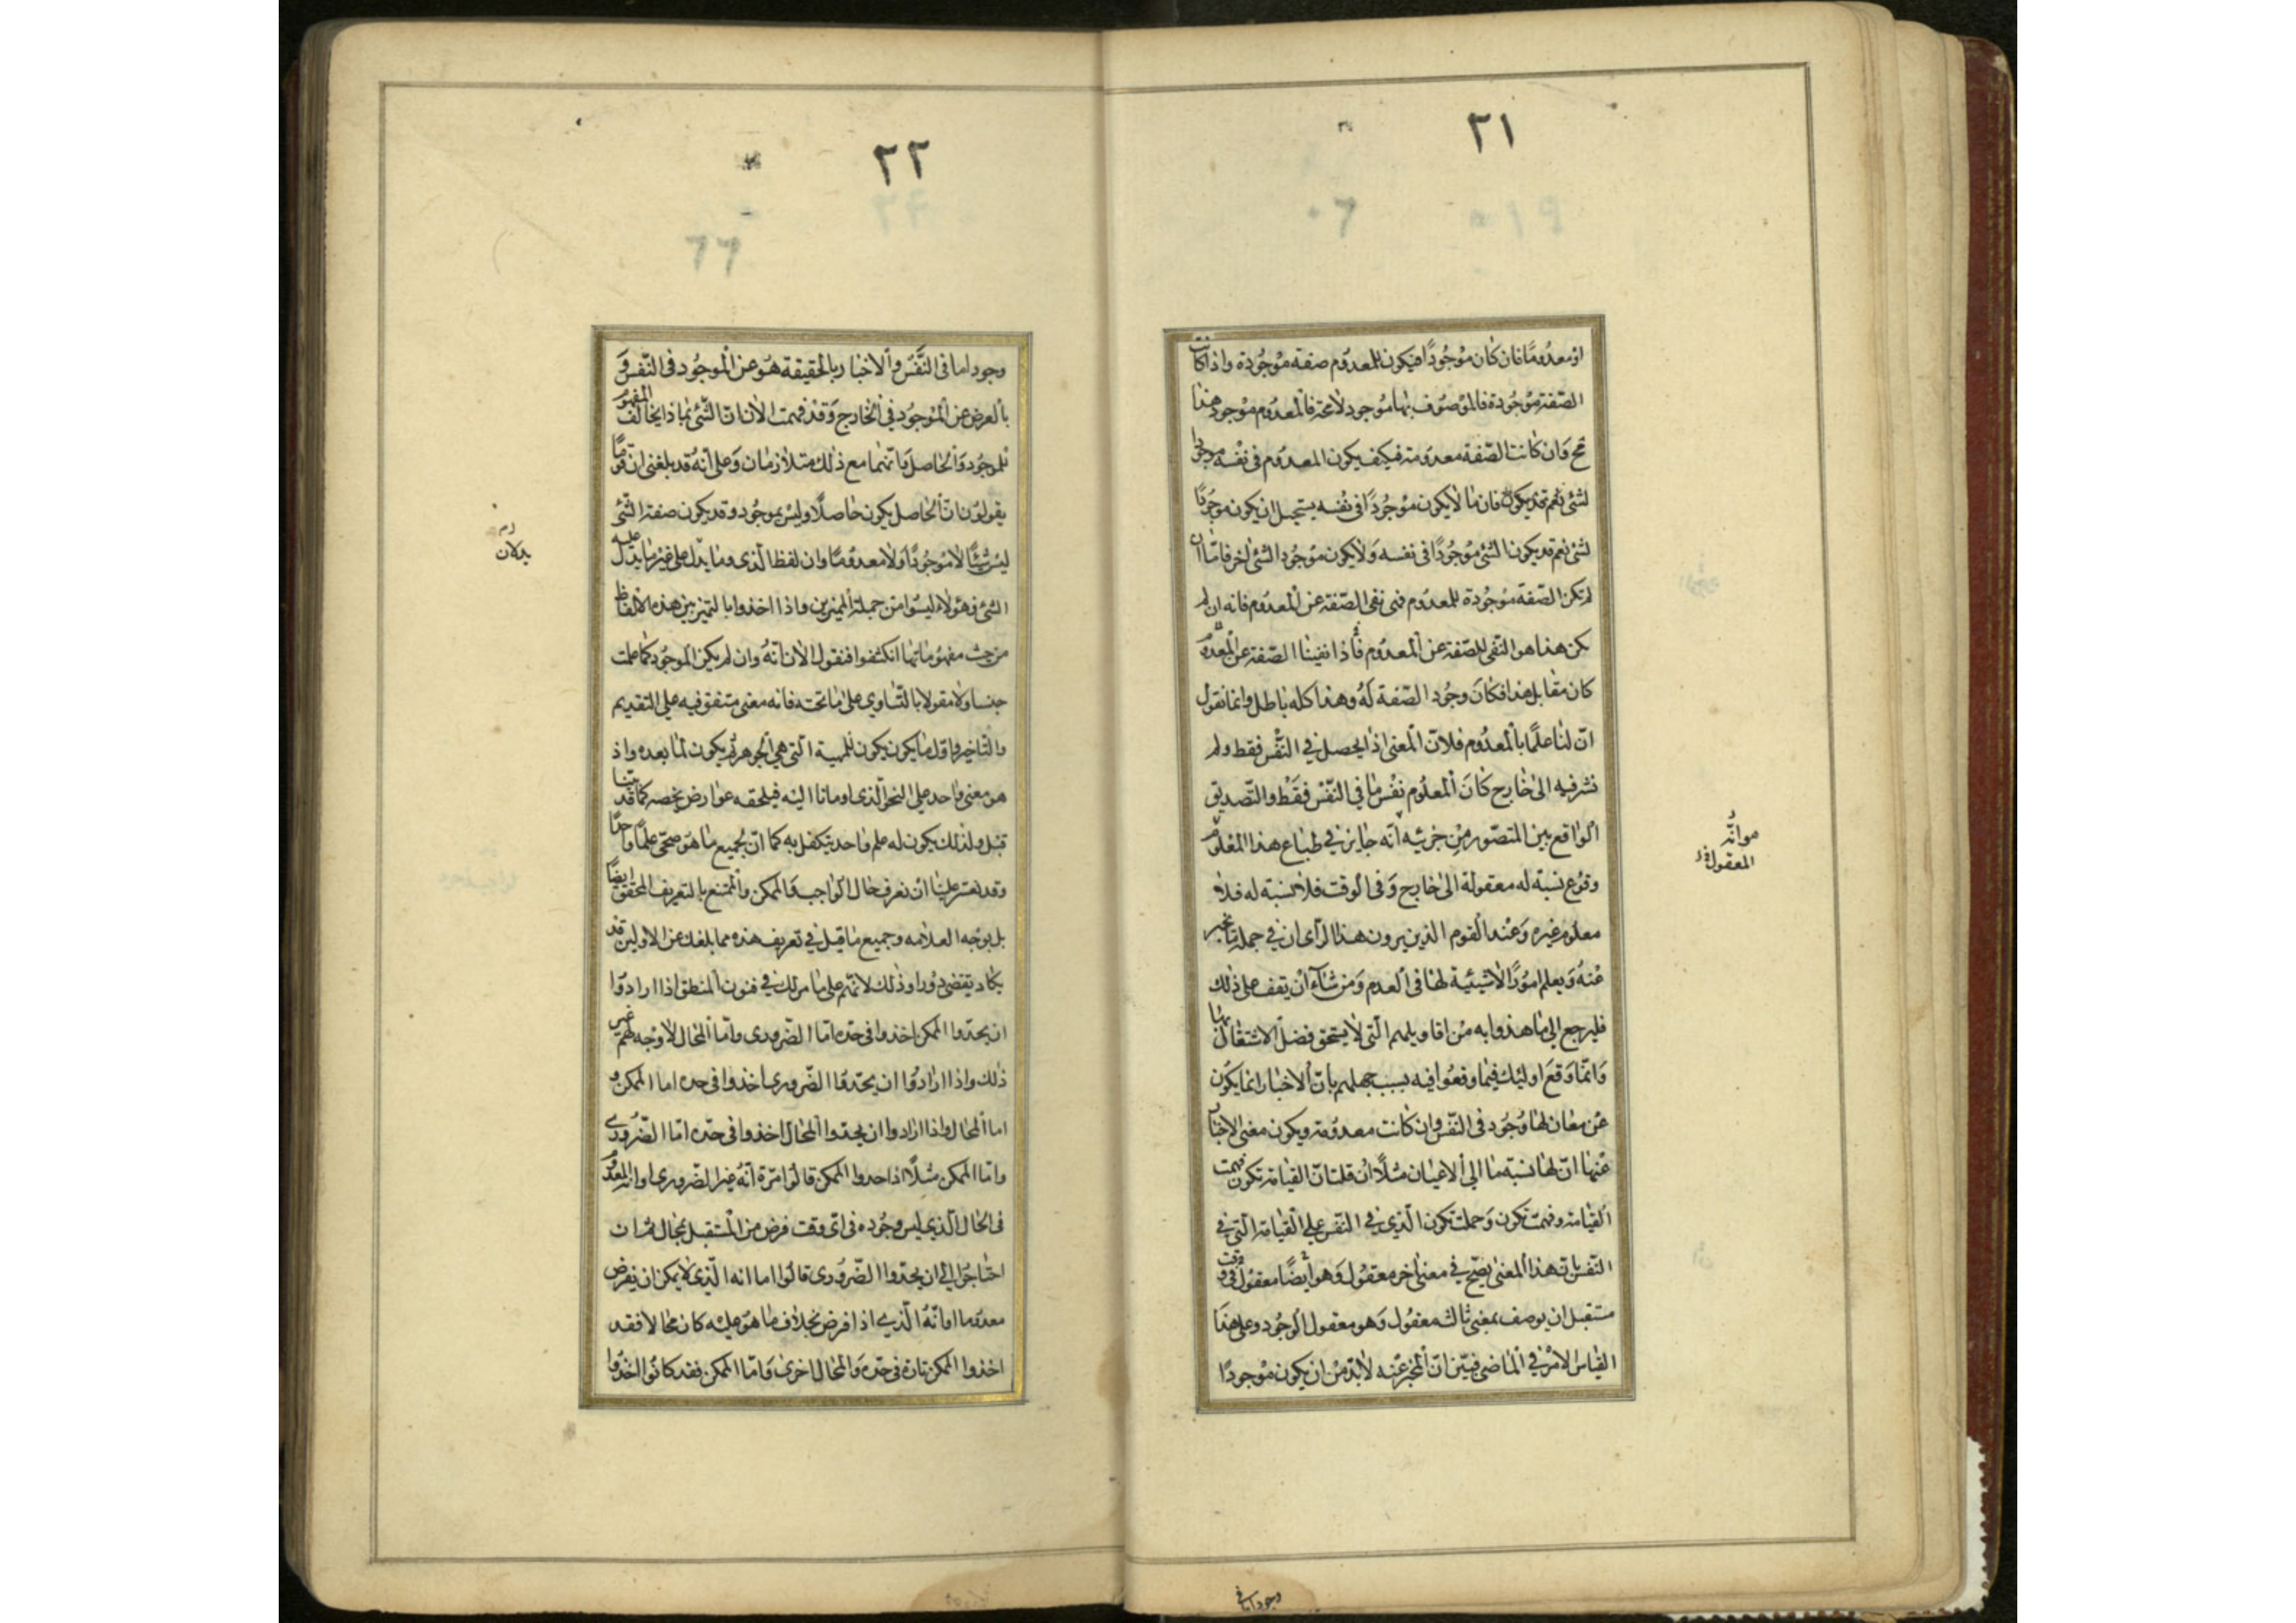 ٢١
او معدوما فان كان موجودا فيكون للمعدوم صفة موجودة واذا كانت
الصفة موجودة فالموصوف بها موجود لا محة فالمعدوم موجود هذا
مح وان كانت الصفة معدومة فكيف يكون المعدوم فى نفسه موجودا
لشئ فان ما لا يكون موجودا فى نفسه يستحيل ان يكون موجودا
لشئ نعم قد يكون الشئ موجودا فى نفسه ولا يكون موجودا لشئ اخر فاما ان
لم تكن الصفة موجودة للمعدوم فهى نفى الصفة عن المعدوم فانه ان لم
يكن هذا هو النفى للصفة عن المعدوم فاذا نفينا الصفة عن المعدوم
كان مقابل هذا فكان وجود الصفة له وهذا كله باطل وانما نقول
ان لنا علما بالمعدوم فلان المعنى اذا يحصل في النفس فقط ولم
نشر فيه الى خارج كان المعلوم نفس ما في النفس فقط والتصديق
الواقع بين المتصور من جزئيه انه جايز في طباع هذا المعلوم
وقوع نسبة له معقولة الى خارج وفى الوقت فلا نسبة له فلا
معلوم غيره وعند القوم الذين يرون هذا الرأى ان في جملة ما يخبر
عنه ويعلم امورا لا شيئية لها فى العدم ومن شاء ان يقف على ذلك
فليرجع الى ما هذوا به من اقاويلهم التى لا يستحق فضل الاشتغال بها
وانما وقع اوليك فيما وقعوا فيه بسبب جهلهم بان الاخبار انما يكون
عن معان لها وجود فى النفس وان كانت معدومة ويكون معنى الاخبار
عنها ان لها نسبة ما الى الاعيان مثلا ان قلت ان القيامة تكون فهمت
القيامة وفهمت تكون وحملت تكون الذي في النفس على القيامة التى في
النفس بان هذا المعنى يصح في معنى اخر معقول وهو ايضا معقول فى وقت
مستقبل ان يوصف بمعنى ثالث معقول وهو معقول الوجود وعلى هذا
القياس الامر في الماضى فبين ان المخبر عنه لا بد من ان يكون موجودا
المعقول
وجودا ما فى
٢٢
وجودا ما فى النفس والاخبار بالحقيقة هو عن الموجود فى النفس و
بالعرض عن الموجود في الخارج وقد فهمت الان ان الشئ بماذا يخالف المفهوم
للموجود والحاصل وانهما مع ذلك متلازمان وعلى انه قد بلغنى ان قوما
يقولون ان الحاصل يكون حاصلا وليس بموجود وقد يكون صفة الشئ
ليس شيئا لا موجودا ولا معدوما وان لفظ الذى وما يدل على غير ما يدل عليه
الشئ فهؤلاء ليسوا من جملة المميزين واذا اخذوا بالتميز بين هذه الالفاظ
من حيث مفهوماتها انكشفوا فنقول الان انه وان لم يكن الموجود كما علمت
جنسا ولا مقولا بالتساوي على ما تحته فانه معنى متفق فيه على التقديم
والتاخير واول ما يكون يكون للمهية التي هي الجوهر ثم يكون لما بعده واذ
هو معنى واحد على النحو الذى اومانا اليه فيلحقه عوارض يخصه كما قد بينا
قبل ولذلك يكون له علم واحد يتكفل به كما ان لجميع ما هو صحى علما واحدا
وقد يعسر علينا ان نعرف حال الواجب والممكن والممتنع بالتعريف المحقق ايضا
بل بوجه العلامه وجميع ما قيل في تعريف هذه مما بلغك عن الاولين قد
يكاد يقتضى دورا وذلك لانهم على ما مر لك في فنون المنطق اذا ارادوا
ان يحدوا الممكن اخذوا فى حده اما الضرورى واما المحال لا وجه لهم غير
ذلك واذا ارادوا ان يحدوا الضرورى اخذوا فى حده اما الممكن و
اما المحال واذا ارادوا ان يحدوا المحال اخذوا فى حده اما الضروري
واما الممكن مثلا اذا حدوا الممكن قالوا مرة انه غير الضرورى او انه المعدوم
فى الحال الذي ليس وجوده فى اى وقت فرض من المستقبل بمحال ثم ان
احتاجوا الى ان يحدوا الضرورى قالوا اما انه الذي لا يمكن ان يفرض
معدوما او انه الذي اذا فرض بخلاف ما هو عليه كان محالا فقد
اخذوا الممكن تارة فى حده والمحال اخرى واما الممكن فقد كانوا اخذوا
يدلان